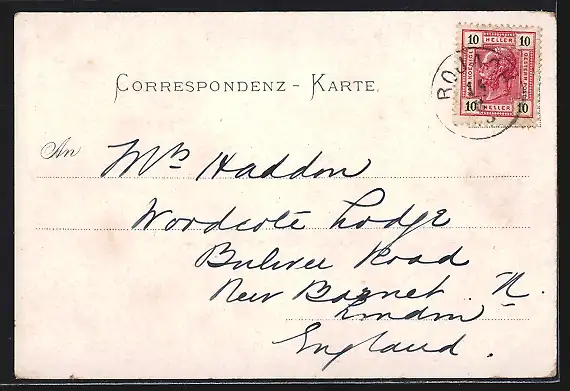 10 HELLER 10
10 HELLER 10
CORRESPONDENZ - KARTE.
An Mrs Haddon
Woodcote Lodge
Bulwer Road
New Barnet. N.
London
England.